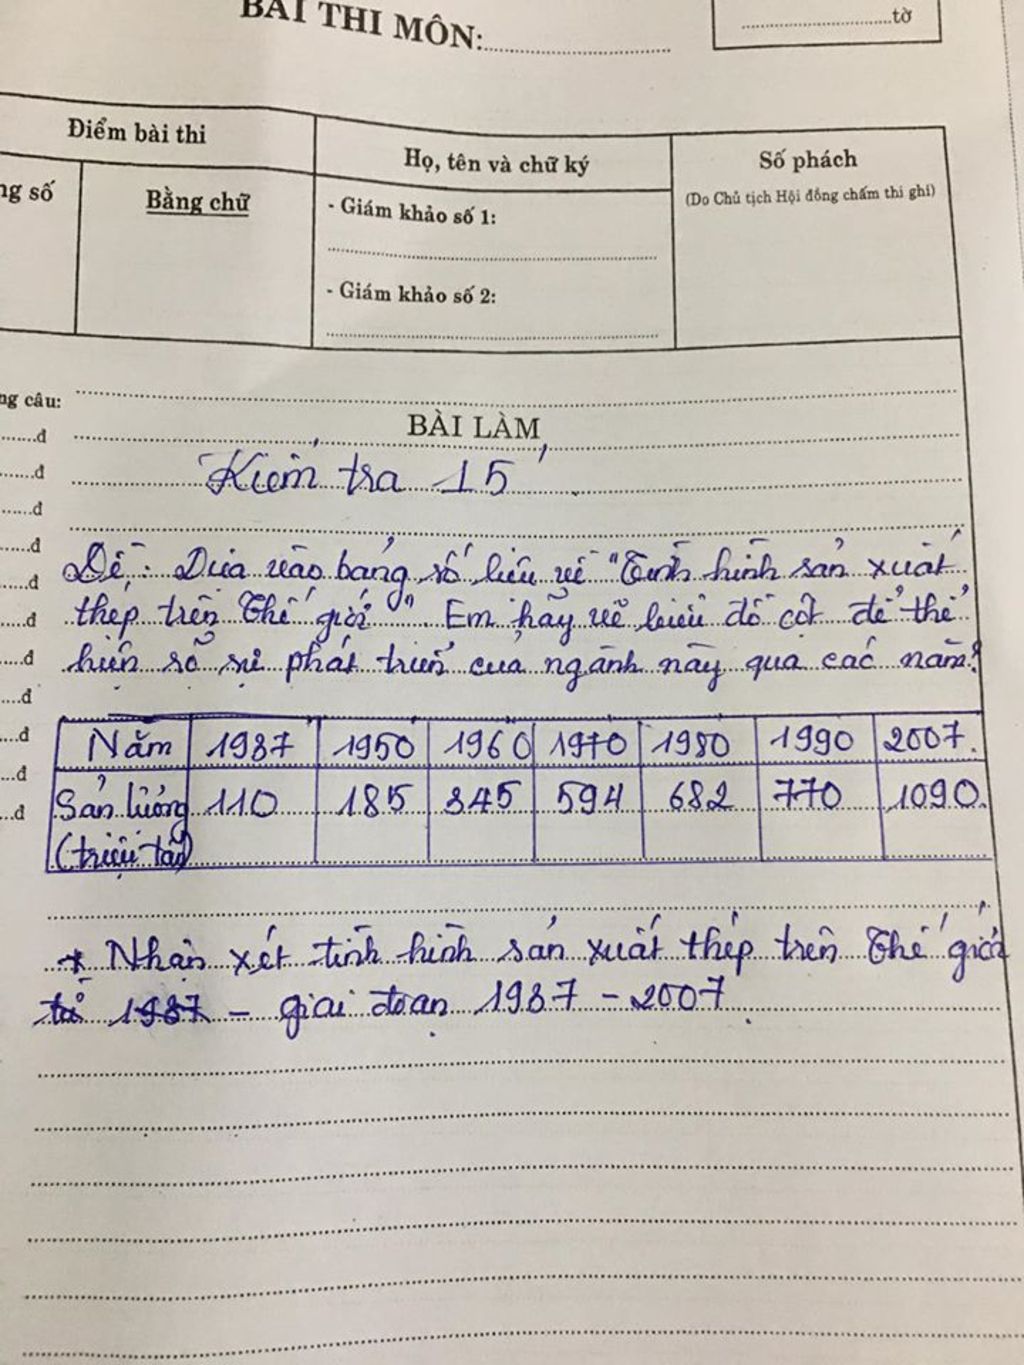 BÀI THI MÔN:
tờ
Điểm bài thi
Họ, tên và chữ ký
Số phách
(Do Chủ tịch Hội đồng chấm thi ghi)
ng số
Bằng chữ
- Giám khảo số 1:
- Giám khảo số 2:
ng câu:
BÀI LÀM
đ
Kiểm tra 15'
đ
đ
đ
Đề: Dựa vào bảng số liệu về "Tình hình sản xuất
đ
thép trên Thế giới". Em hãy vẽ biểu đồ cột để thể
đ
hiện số sự phát triển của ngành này qua các năm?
đ
đ
đ
Năm 1937 1950 1960 1970 1980 1990 2007.
đ
Sản lượng 110 185 345 594 682 770 1090.
đ
(triệu tấn)
* Nhận xét tình hình sản xuất thép trên Thế giới
từ 1937 - giai đoạn 1937 - 2007